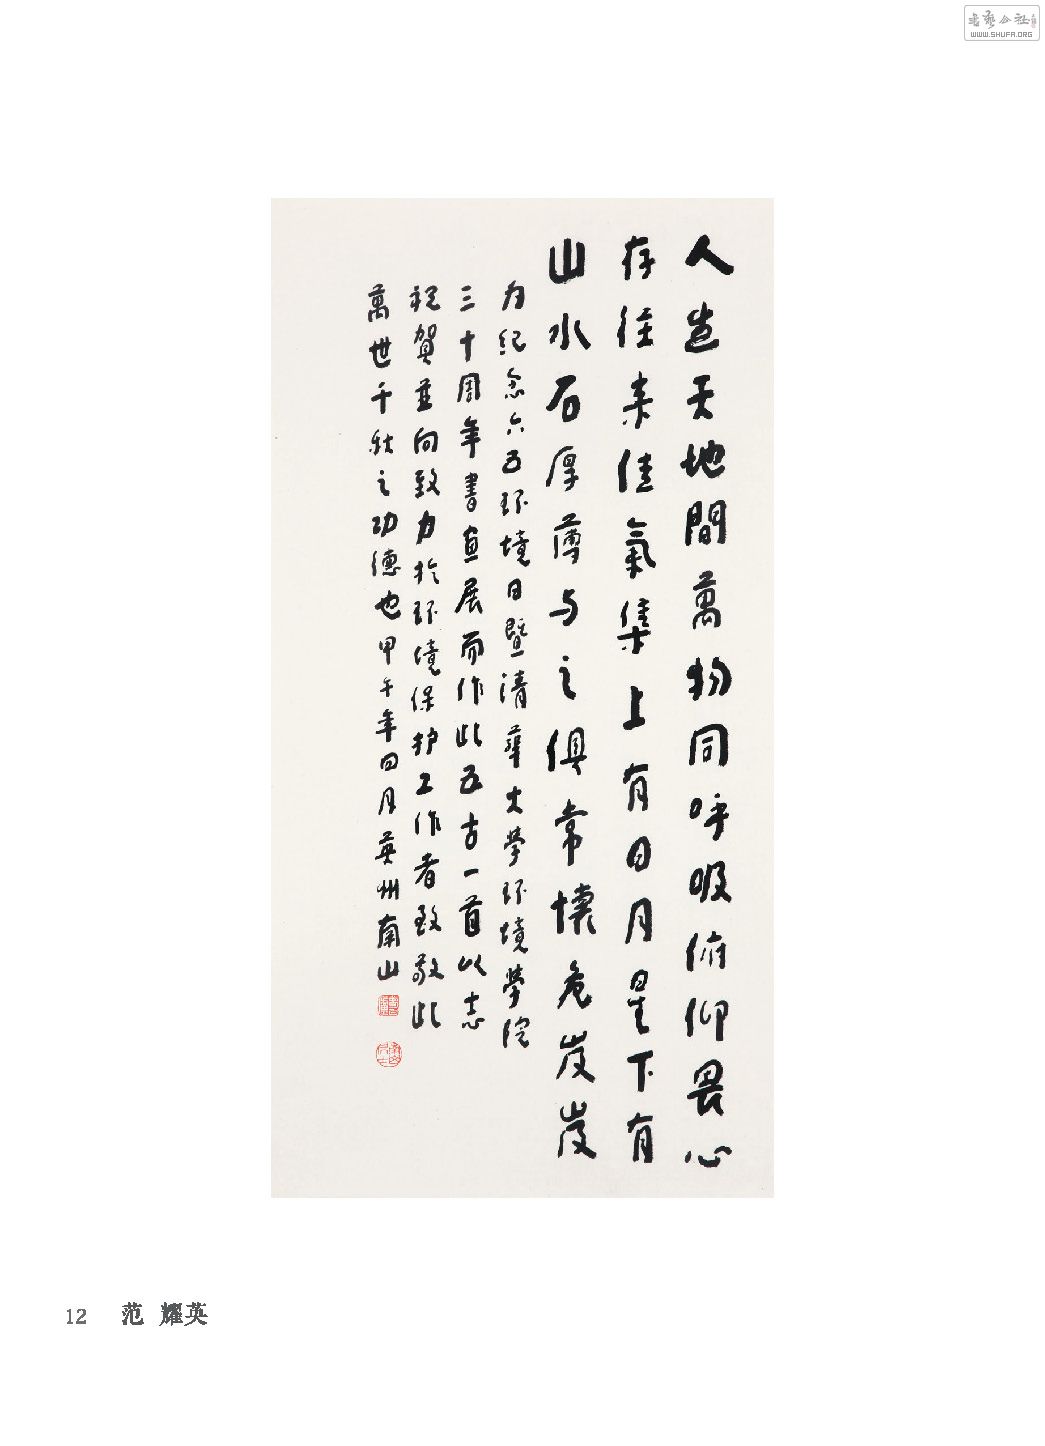 人造天地間萬物同呼吸俯仰畏心
存往来佳氣集上有日月星下有
山水石厚薄与之俱常懷危岌岌
为纪念六五环境日暨清華大學环境學院
三十周年書画展而作此五古一首以志
祝賀並向致力於环境保护工作者致敬此
萬世千秋之功德也甲午年四月英州南山
12 范 耀英
書艺公社
WWW.SHUFA.ORG